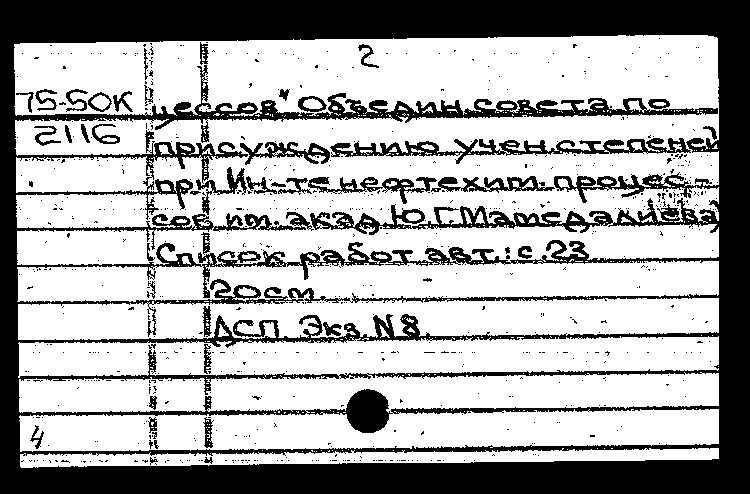 2
75-50К цессов" Объедин. совета по
2116
присуждению учен. степеней
при Ин-те нефтехим. процес-
сов им. акад. Ю.Г. Мамедалиева)
Список работ авт.: с. 23
20см.
ДСП. Экз. N 8.
4